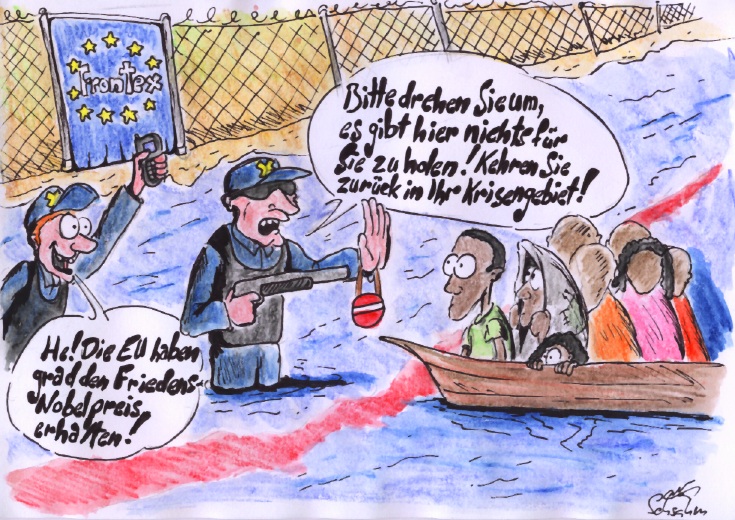 Frontex
Bitte drehen Sie um,
es gibt hier nichts für
Sie zu holen! Kehren Sie
zurück in Ihr Krisengebiet!
He! Die EU haben
grad den Friedens-
Nobelpreis
erhalten!